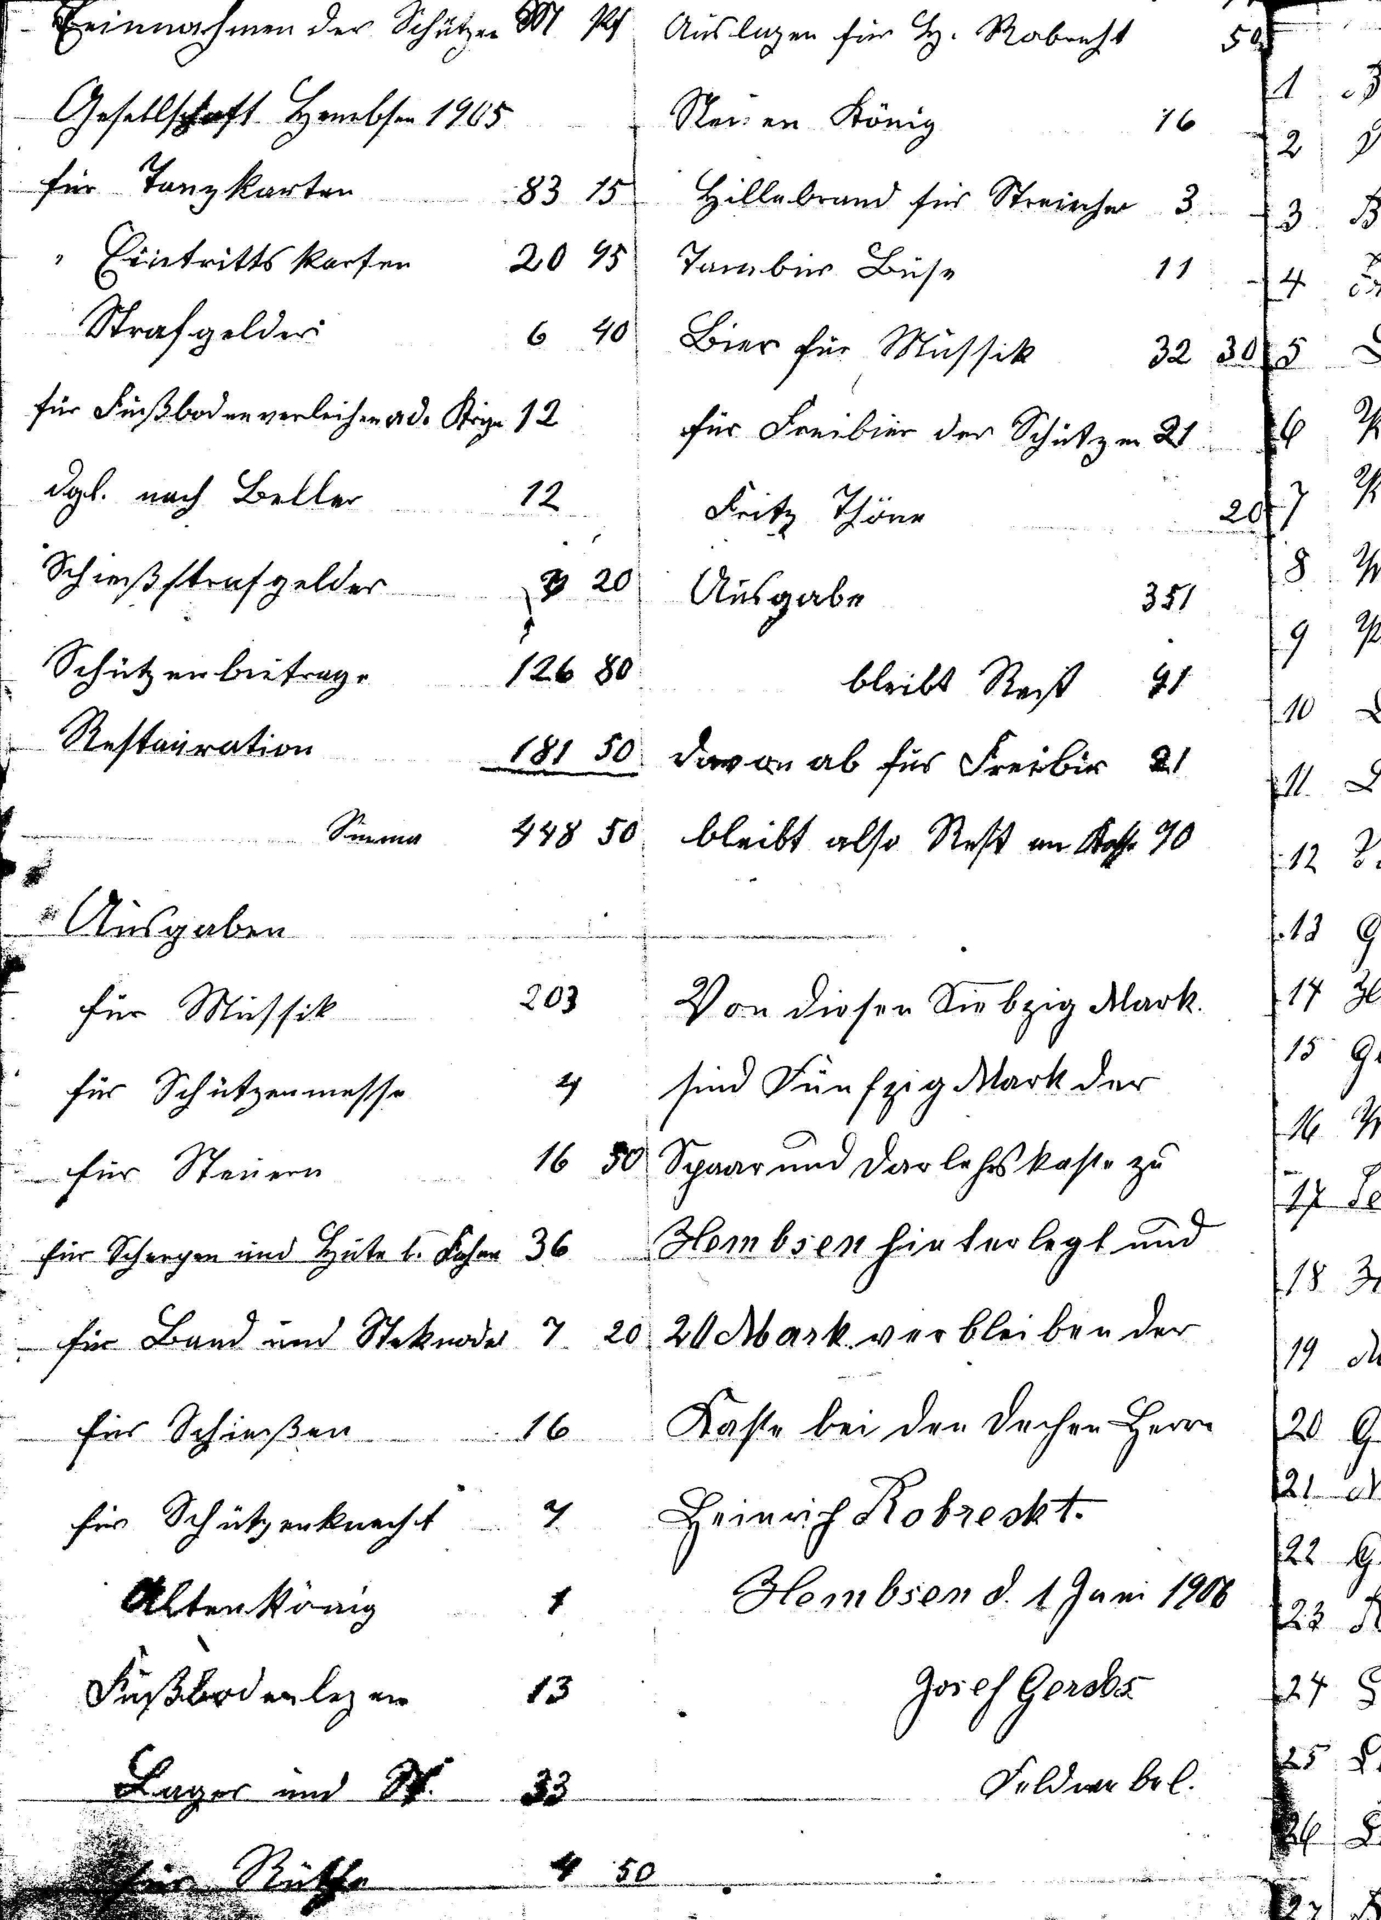 Einnahmen der Schützen M Pf
Gesellschaft Hembsen 1905
für Tanzkarten 83 15
" Eintrittskarten 20 95
Strafgelder 6 40
für Fußbodenverleihen 12
dgl. nach Beller 12
Schießstrafgelder 20
Schützenbeitrage 126 80
Restauration 181 50
Summa 448 50
Ausgaben
für Mussik 203
für Schützenmesse 4
für Steuern 16 50
für Scherpen und Hüte b. Fahne 36
für Band und Steknadel 7 20
für Schießen 16
für Schützenknecht 7
Alten König 1
Fußbodenlegen 13
Lager und 33
für 4 50
Auslagen für H. Robrecht 50
Neuen König 16
Hillebrand für 3
Tambur Buse 11
Bier für Mussik 32 30
für Freibier der Schützen 21
Fritz Thöne 20
Ausgabe 351
bleibt Rest 91
davon ab für Freibir 21
bleibt also Rest an Kasse 70
Von diesen Siebzig Mark.
sind Fünfzig Mark der
Spaar und Darlehskasse zu
Hembsen hinterlegt und
20 Mark verbleiben der
Kasse bei den Dechen Herrn
Heinrich Robreckt.
Hembsen d. 1 Juni 1906
Josef Gerdes
Feldwebel.
1
2
3
4
5
6
7
8
9
10
11
12
13
14
15
16
17
18
19
20
21
22
23
24
25
26
27